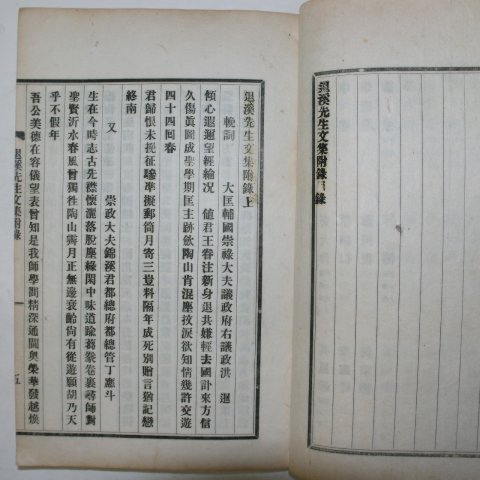 退溪先生文集附錄目錄
退溪先生文集附錄上
輓詞　大匡輔國崇祿大夫議政府右議政洪暹
傾心遐邇望經綸况値君王眷注新身退共嫌輕去國訃來方信
久傷眞圖成聖學期匡主跡飮陶山肯混塵抆淚欲知情幾許交遊
四十四回春
君歸恨未挽征驂準擬郵筒月寄三豈料隔年成死別贈言猶記戀
終南
又　崇政大夫錦溪君都總府都總管丁應斗
生在今時志古先襟懷灑落脫塵緣閑中味道踰蒭豢卷裏尋師對
聖賢沂水春風曾獨往陶山霽月正無邊衰齡尙有從遊願胡乃天
乎不假年
吾公美德在容儀望表曾知是我師學問精深通閫奧榮華發越煥
退溪先生文集附錄
五